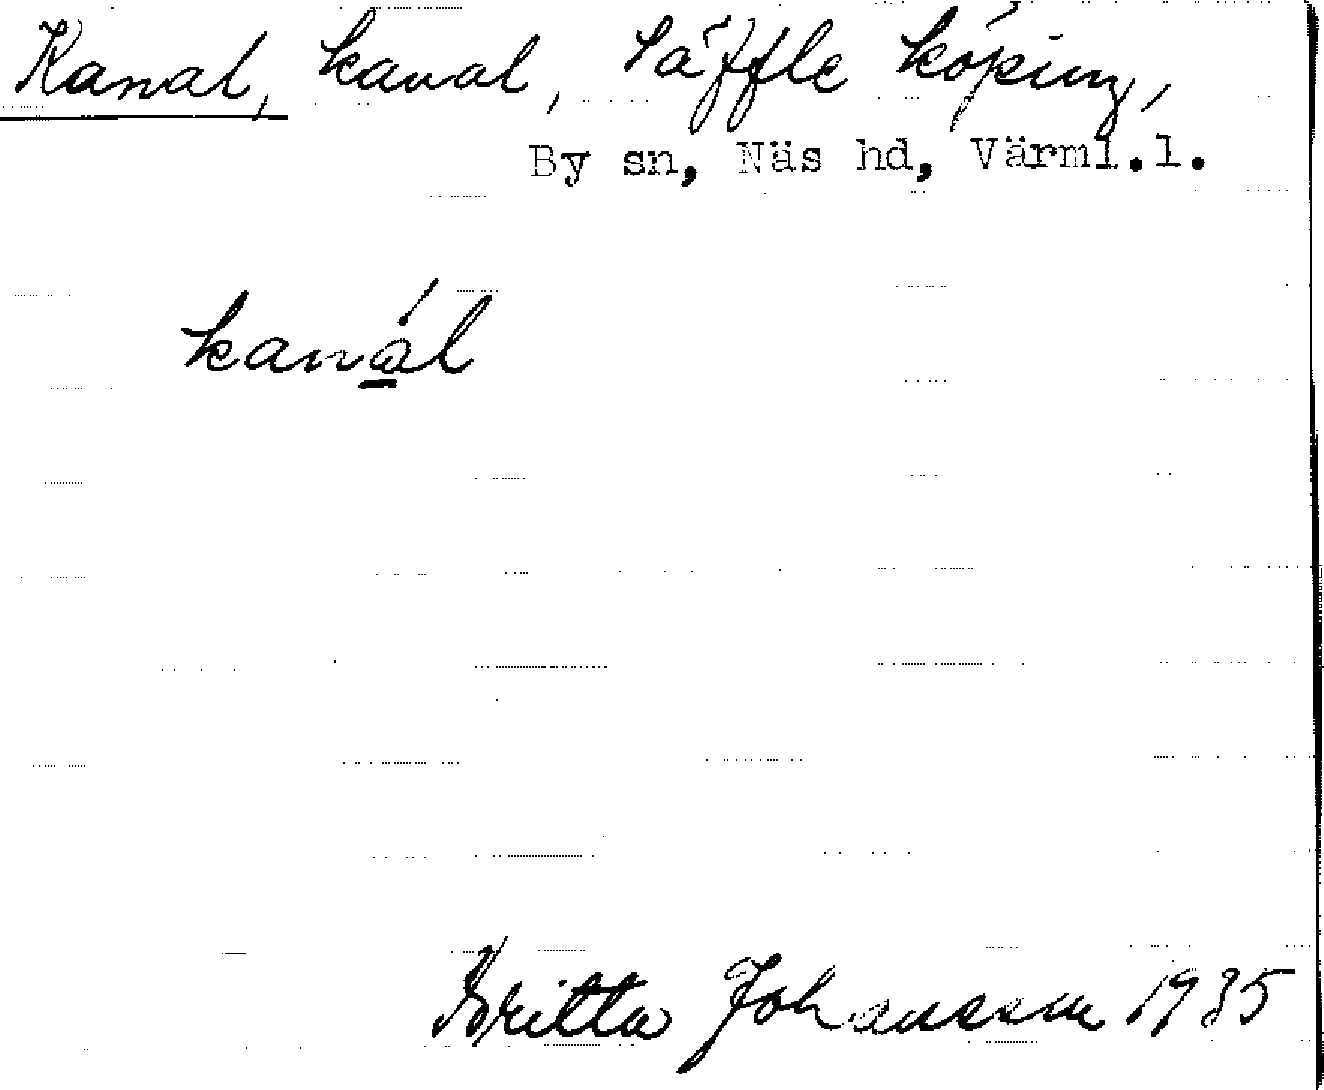 Kanal, kanal, Säffle köping,
By sn, Näs hd, Värml.l.
kanál
Britta Johansson 1935